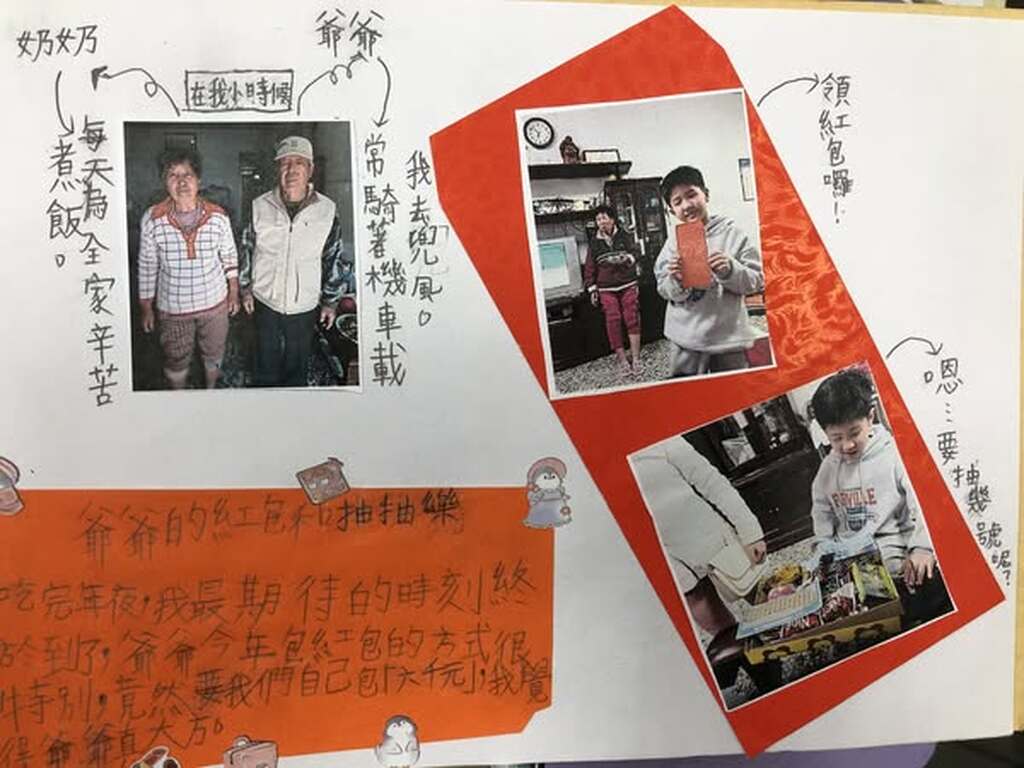 奶奶
每天為全家辛苦
煮飯。
在我小時候
爺爺
常騎著機車載
我去兜風。
領紅包囉!
嗯…要抽幾號呢?
爺爺的紅包和抽抽樂
吃完年夜,我最期待的時刻終
於到了,爺爺今年包紅包的方式很
特別,竟然要我們自己包「六千元」,我覺
得爺爺真大方。